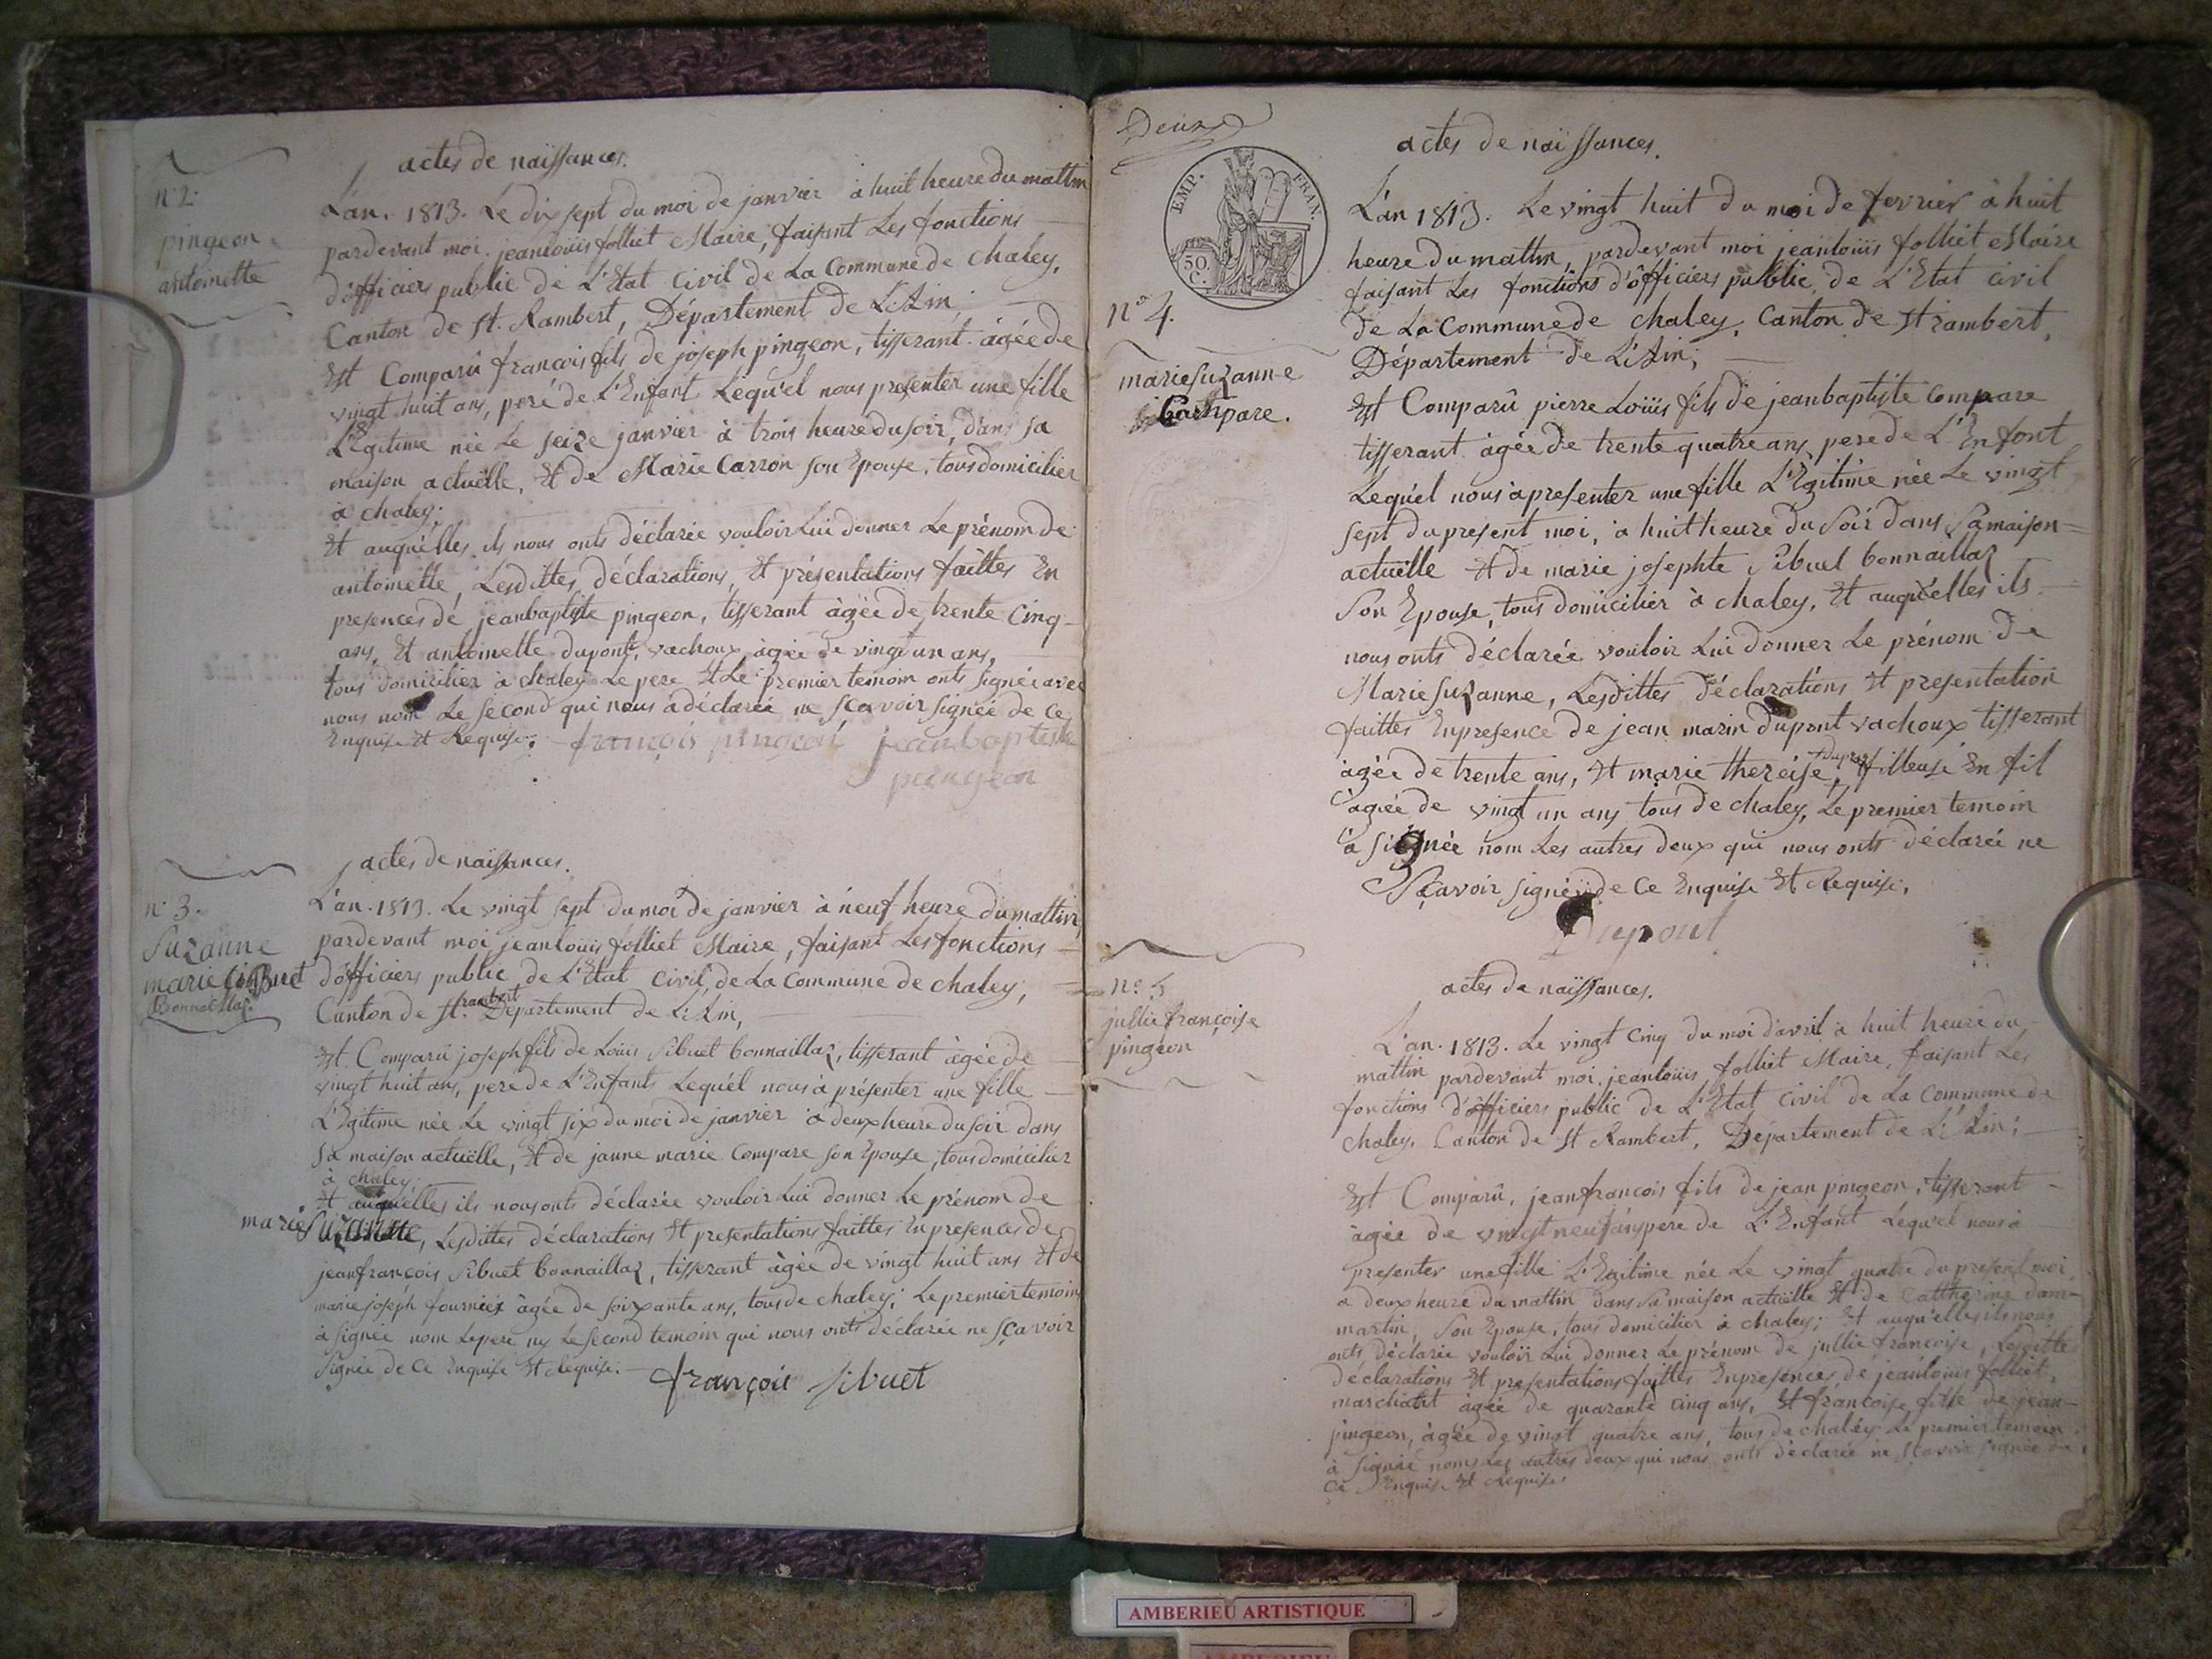 n° 2.
pingeon
antoinette
actes de naissances.
L'an. 1813. Le dix sept du moi de janvier à huit heure du mattin
pardevant moi jeanlouis folliet Maire, faisant Les fonctions
d'officiers public de L'Etat Civil de La Commune de chaley,
Canton de st. Rambert, Département de L'Ain,
Est Comparû francois fils de joseph pingeon, tisserant agée de
vingt huit ans, peré de L'Enfant Lequ'el nous presenter une fille
L'Egitime née Le seize janvier à trois heure du soir, dans sa
maison actuëlle, Et de Marie Carron son Epouse, tous domicilier
à chaley;
Et auqu'elles ils nous onts déclarée vouloir Lui donner Le prénom de
antoinette, Lesdittes déclarations, Et présentations faittes En
presences de jeanbaptiste pingeon, tisserant àgée de trente Cinq
ans, Et antoinette dupont, vachoux àgée de vingt un ans,
tous domicilier à chaley Le pere Et Le premier temoin onts signée avec
nous nom Le second qui nous à déclarée ne sçavoir signée de Ce
Enquise Et Requise. françois pingeon jeanbaptiste
peingeon
n° 3.
Suzanne
marie Sibuet
Bonnaillaz.
actes de naissances.
L'an. 1813. Le vingt sept du moi de janvier à neuf heure du mattin,
pardevant moi jeanlouis folliet Maire, faisant Les fonctions
d'officiers public de L'Etat Civil, de La Commune de chaley,
Canton de st. rambert Département de L'Ain,
Est Comparû joseph fils de Louis Sibuet bonnaillaz, tisserant àgée de
vingt huit ans, pere de L'Enfants Lequ'el nous à présenter une fille
L'Egitime née Le vingt six du moi de janvier à deux heure du soir dans
sa maison actuëlle, Et de janne marie Compare son Epouse, tous domicilier
à chaley.
Et auqu'elles ils nous onts déclarée vouloir Lui donner Le prénom de
marie Suzanne, Lesdittes déclarations Et presentations faittes En presences de
jeanfrançois Sibuet bonnaillaz, tisserant àgée de vingt huit ans Et de
marie joseph fournier àgée de soixante ans, tous de chaley; Le premier temoin
à signée nom Le pere ny Le second temoin qui nous onts déclarée ne sçavoir
signée de Ce Enquise Et Requise.
françois sibuet
Deux
EMP. FRAN.
50. C.
n° 4.
marie Suzanne
Compare.
actes de naissances.
L'an 1813. Le vingt huit du moi de fevrier à huit
heure du mattin, pardevant moi jeanlouis folliet Maire
faisant Les fonctions d'officiers public, de L'Etat Civil
de La Commune de chaley, Canton de st rambert,
Département de L'Ain;
Est Comparû pierre Louis fils de jeanbaptiste Compare
tisserant àgée de trente quatre ans, pere de L'Enfant
Lequ'el nous à presenter une fille L'Egitime née Le vingt
sept du present moi, à huit heure du Soir dans Sa maison
actuëlle Et de marie josephte Sibuet bonnaillaz
Son Epouse, tous domicilier à chaley, Et auqu'elles ils
nous onts déclarée vouloir Lui donner Le prénom de
Marie Suzanne, Lesdittes déclarations Et presentation
faittes En presence de jean marin dupont vachoux tisserant
àgée de trente ans, Et marie thereise Dupras filleuse En fil
àgée de vingt un ans tous de chaley, Le premier temoin
à signée nom Les autres deux qui nous onts déclarée ne
Sçavoir signée de Ce Enquise Et Requise.
Dupont
n° 5
jullie françoise
pingeon
actes de naissances.
L'an. 1813. Le vingt Cinq du moi d'avril à huit heure du
mattin pardevant moi, jeanlouis folliet Maire, faisant Les
fonctions d'officiers public de L'Etat Civil de La Commune de
chaley, Canton de st Rambert, Département de L'Ain;
Est Comparû, jeanfrancois fils de jean pingeon, tisserant
àgée de vingt neuf ans pere de L'Enfant Lequ'el nous à
presenter une fille L'Egitime née Le vingt quatre du present moi,
à deux heure du mattin dans Sa maison actuëlle Et de Catherine dam=
martin, Son Epouse, tous domicilier à chaley; Et auqu'elles ils nous
onts déclarée vouloir Lui donner Le prénom de jullie francoise, Lesdittes
déclarations Et presentations faittes En presences, de jeanlouis folliet,
marchant àgée de quarante Cinq ans, Et francoise fille de jean
pingeon, àgée de vingt quatre ans, tous de chaley Le premier temoin
à signée nom Les autres deux qui nous onts déclarée ne sçavoir signée de
Ce Enquise Et Requise
AMBERIEU ARTISTIQUE